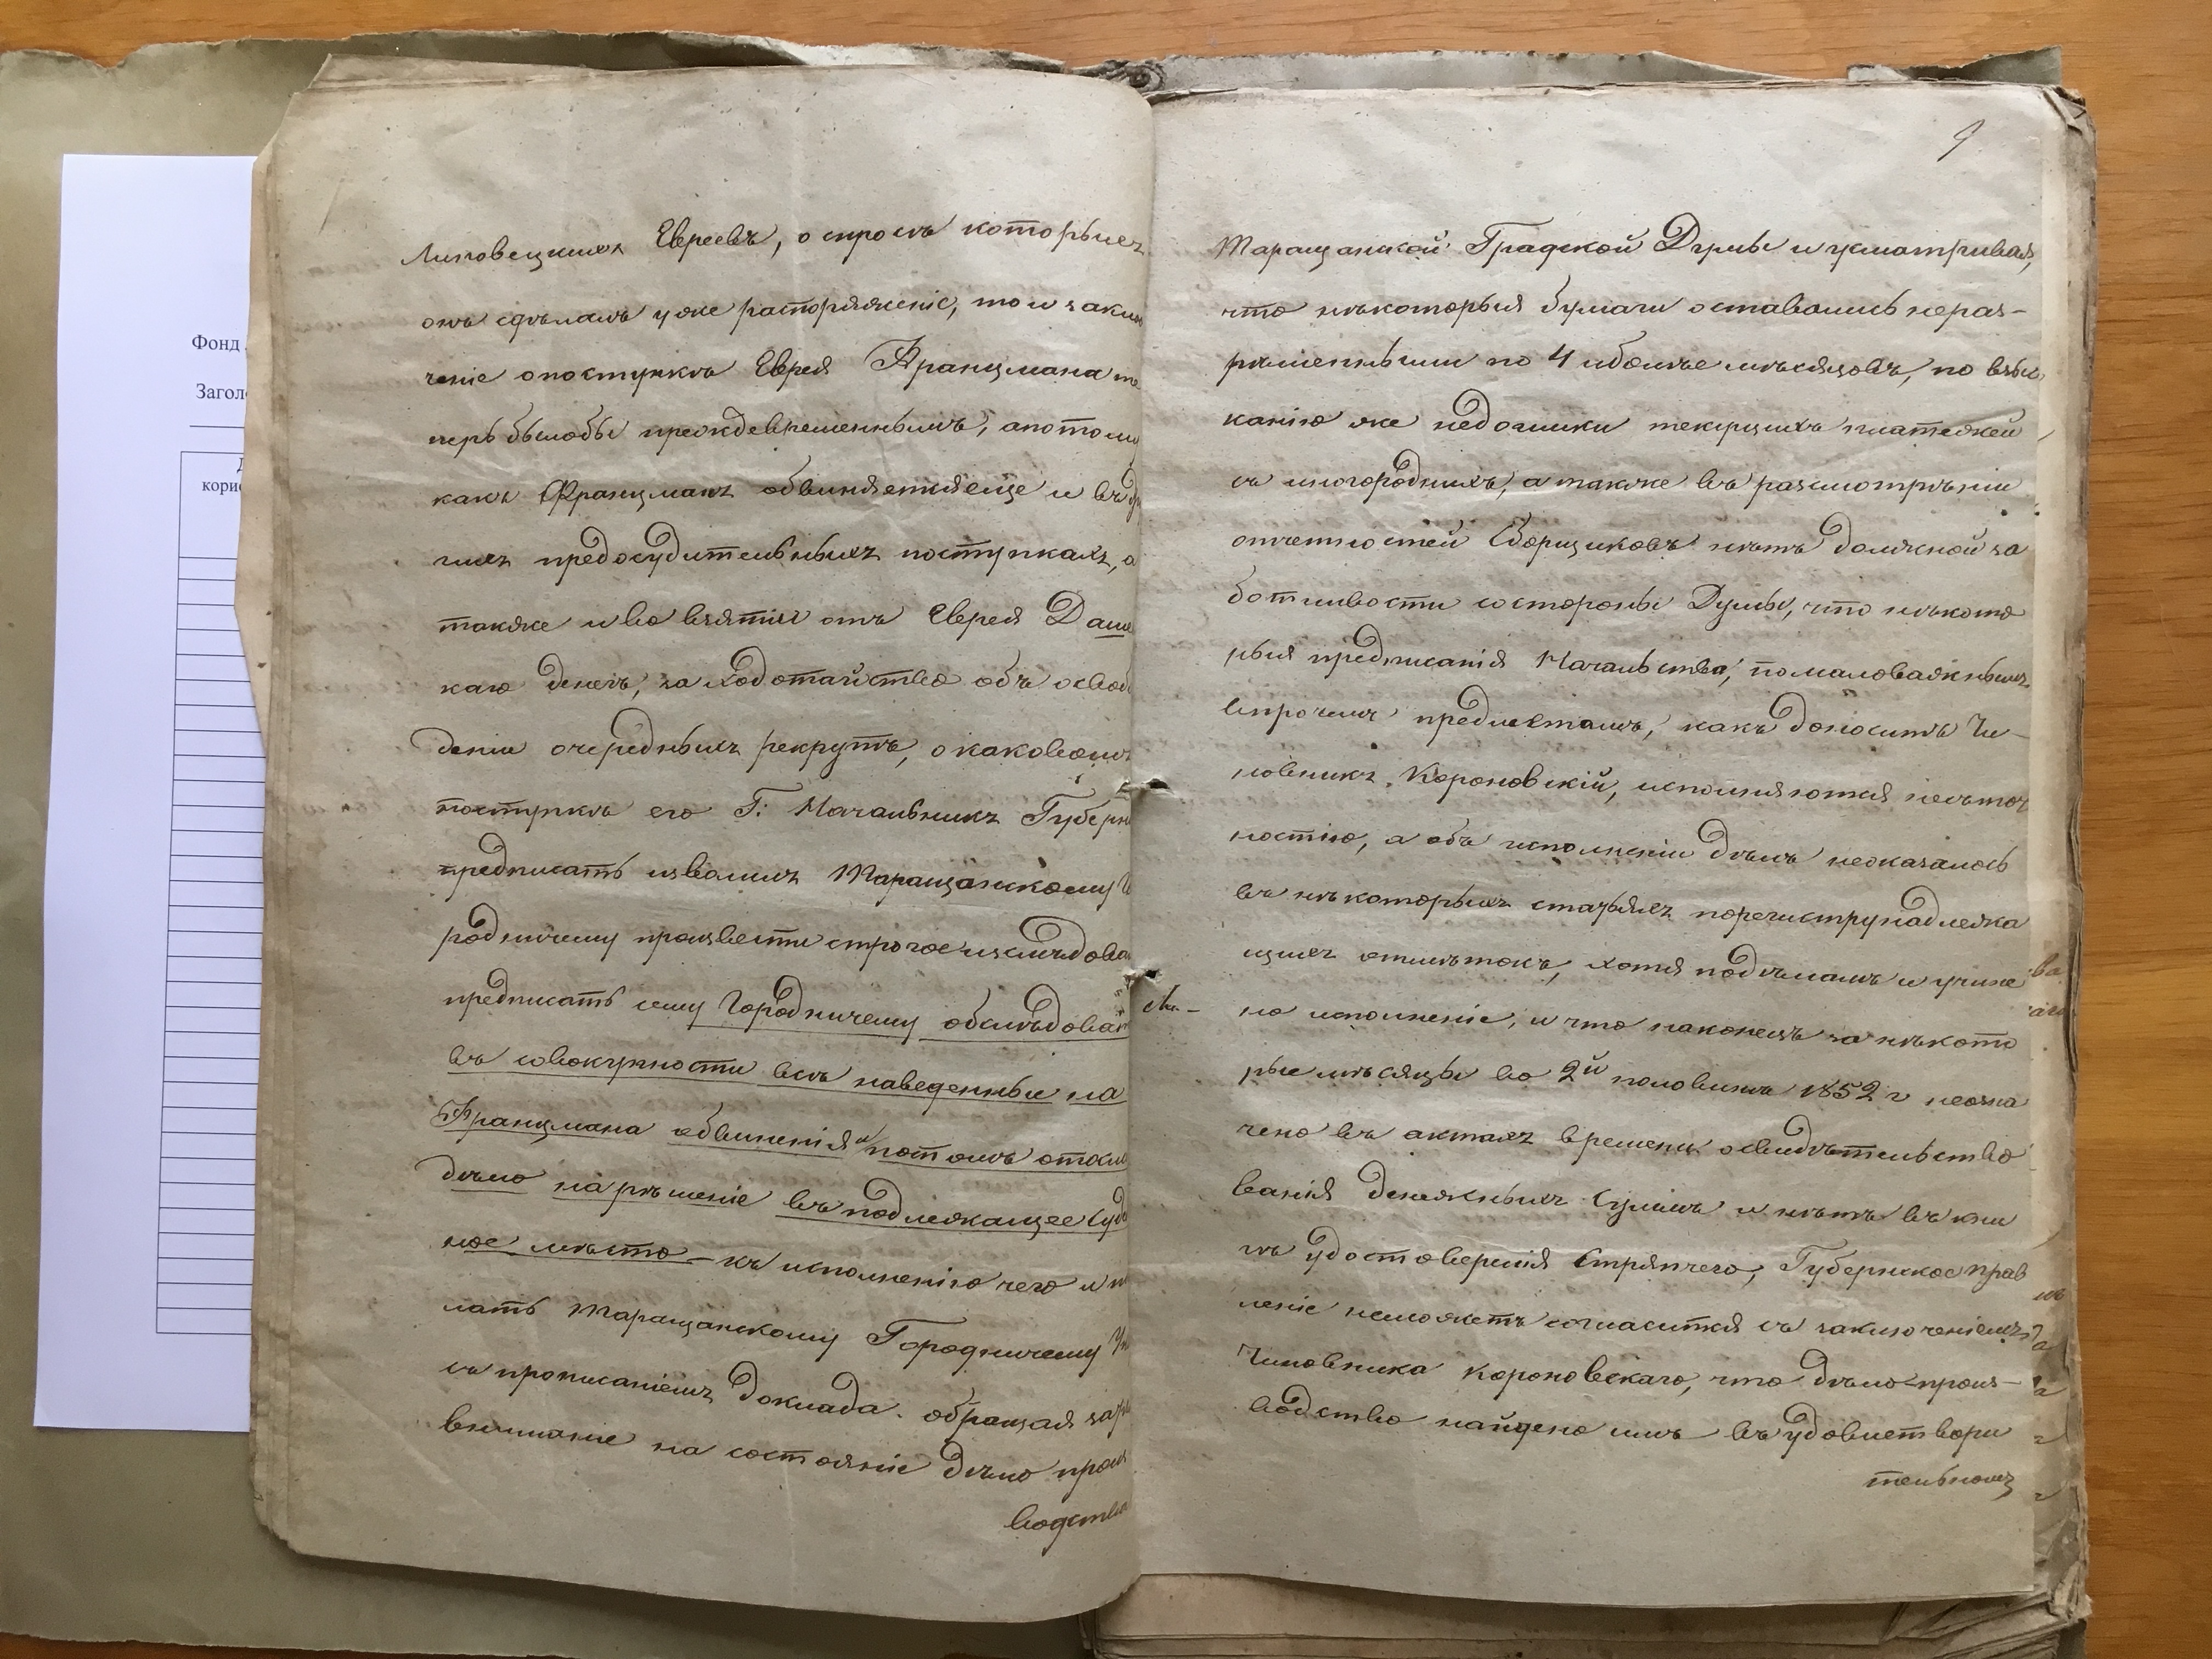 Фонд
Заголо
Д
кори
Липовецкихъ Евреевъ, о спросѣ которыхъ
онъ сдѣлалъ уже расторяженіе, то и заклю
ченіе опоступкѣ Еврея Францмана те
перь былобы преждевременнымъ, апотому
какъ Францманъ обвиняется еще и въ др
гихъ предосудительныхъ поступкахъ, а
также и во взятіи отъ Еврея Даше
каго денегъ, за ходотайство объ освоб
деніи очередныхъ рекрутъ, о каковомъ
поступкѣ его Г: Начальникъ Губерн
предписать изволилъ Таращанскому Го
родничему произвести строгое изслѣдова
предписать сему Городничему обслѣдоват
въ совокупности всѣ наведенные на
Францмана обвиненія и потомъ отосл
дѣло на рѣшеніе въ подлежащее Судеб
ное мѣсто – къ исполненію чего и по
лать Таращанскому Городничему Ук
съ прописаніемъ доклада. обращая за
вниманіе на состояніе дѣло произ
водства
9
Таращанской Градской Думы и усматривая,
что нѣкоторыя бумаги оставались нераз-
рѣшенными по 4 иболѣе мѣсяцовъ, по взыс
канію же недоимки текущихъ платежей
съ иногороднихъ, а также въ разсмотрѣніи
отчетностей Сборщиковъ нѣтъ должной за
ботливости состороны Думы, что нѣкото
рыя предписанія Начальства, помаловажнымъ
впрочемъ предметамъ, какъ доноситъ Чи-
новникъ Короновскій, исполняются несъточ
ностію, а объ исполненіи дѣлъ неоказалось
въ нѣкоторыхъ статьяхъ порегистру надлежа
щихъ отмѣтокъ, хотя подѣламъ и учине
но исполненіе, и что наконецъ за нѣкото
рые мѣсяцы во 2й половинѣ 1852 г неозна
чено въ актахъ времени освидѣтельство
ванія денежныхъ Суммъ и нѣтъ въ кни
гѣ удостовѣренія Стряпчего, Губернское прав
леніе неможетъ согласится съ заключеніемъ
Чиновника Короновскаго, что дѣло произ-
водство найдено имъ въ удовлетвори
тельномъ